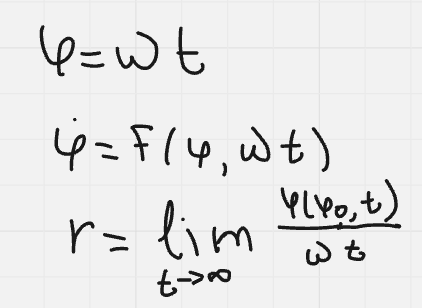 φ = ω t
φ̇ = F(φ, ω t)
r = lim_{t→∞} φ(φ₀, t) / ω t